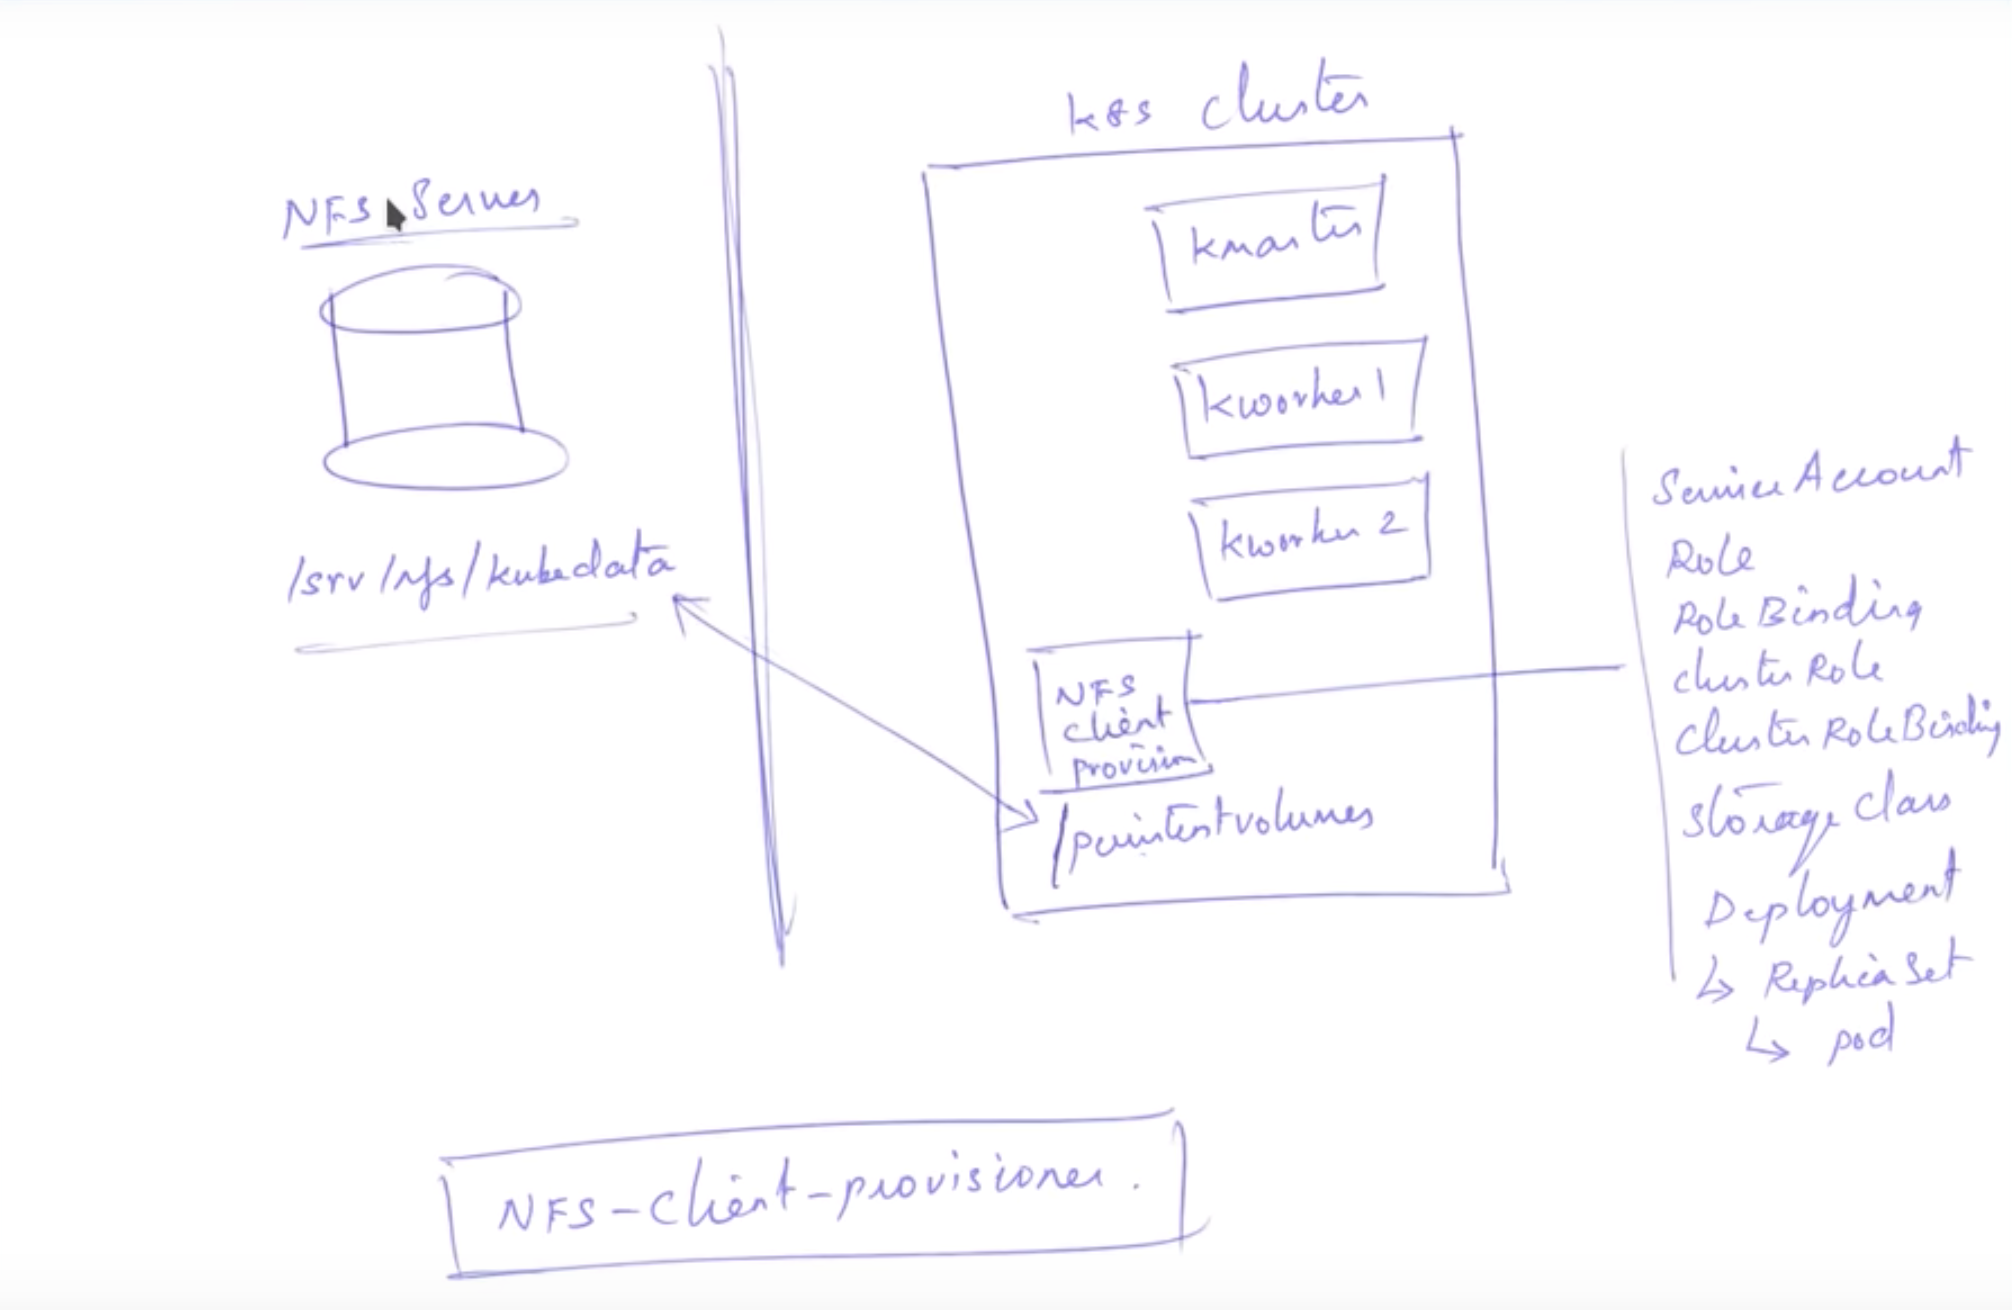 NFS Server
/srv/nfs/kubedata
k8s cluster
kmaster
kworker 1
kworker 2
NFS
client
provision
/persistentvolumes
Service Account
Role
Role Binding
cluster Role
Cluster Role Binding
Storage Class
Deployment
↳ Replica Set
↳ pod
NFS-client-provisioner.